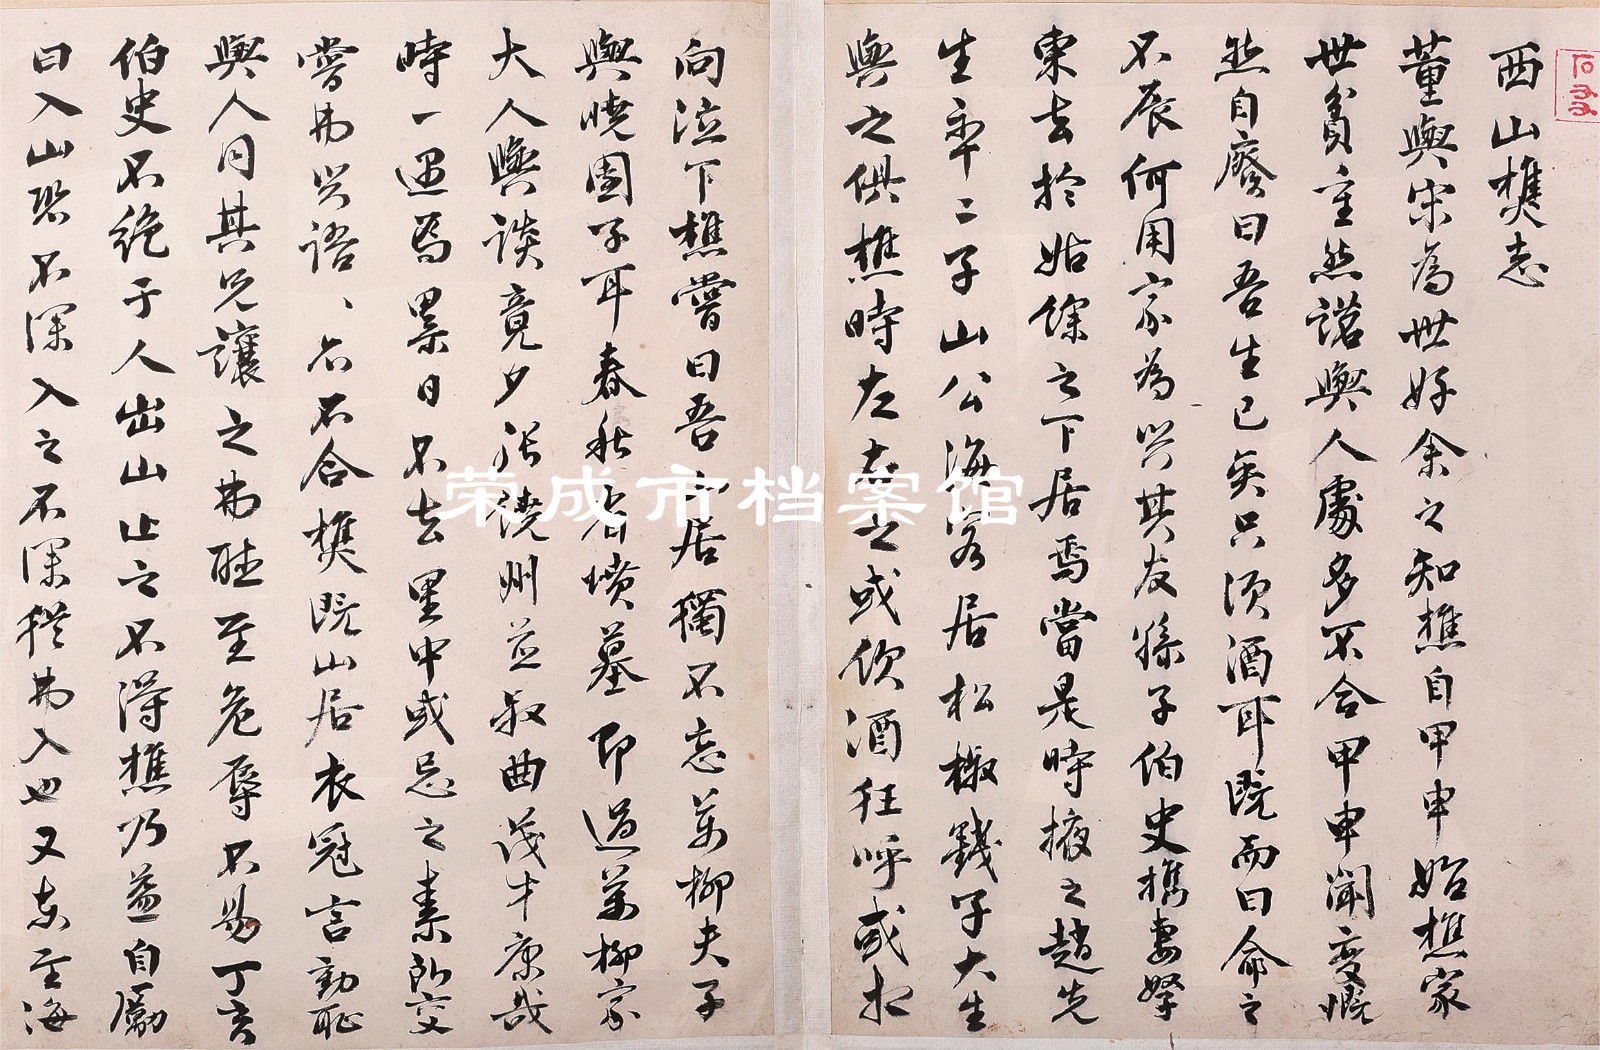 西山樵志
董與宋為世好余之知樵自甲申始樵家
世貧主然諾與人處多不合甲申聞變慨
然自廢曰吾生已矣只須酒耳既而曰命之
不辰何用家為與其友孫子伯史攜妻孥
東去於姑餘之下居焉當是時掖之趙先
生率二子山公海客居松椒錢子大生
與之俱樵時左右之或飲酒狂呼或相
向泣下樵嘗曰吾山居獨不忘萬柳夫子
與曉園子耳春秋省墳墓即過萬柳宗
大人與談竟夕張饒州並叔曲茂才康哉
時一過焉累日不去里中或忌之素所交
嘗弗與語、亦不合樵既山居衣冠言動恥
與人同其兄讓之弗聽至危辱不易丁亥
伯史不絕于人出山止之不得樵乃益自勵
曰入山恐不深入之不深猶弗入也又東至海
荣成市档案馆